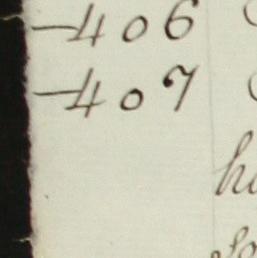 —406
—407